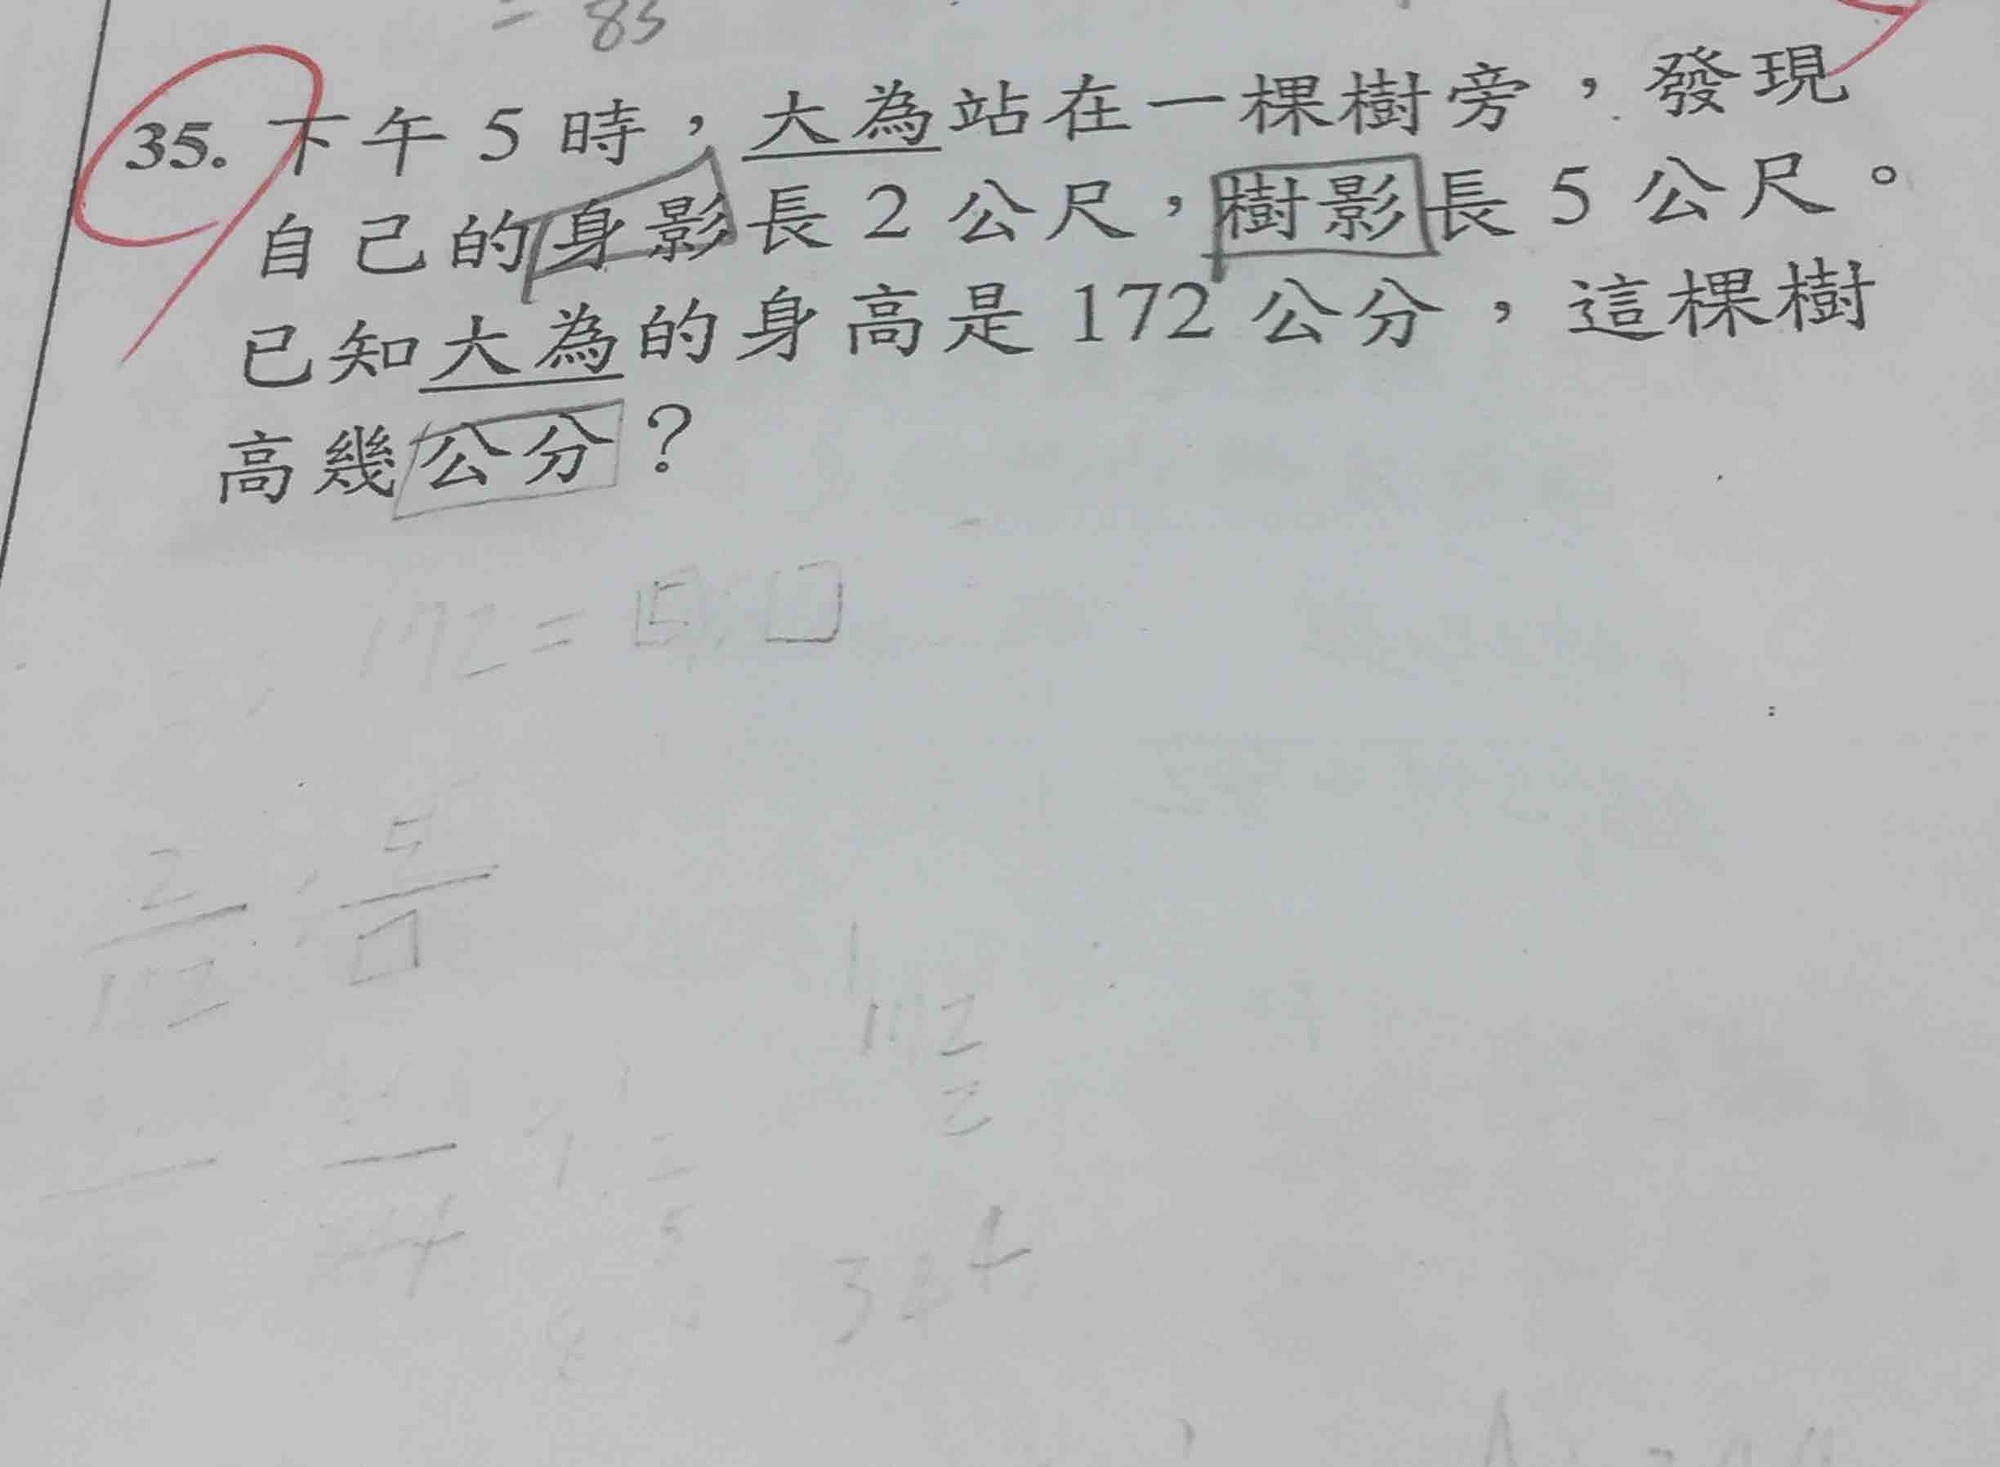 = 85
35. 下午5時，大為站在一棵樹旁，發現
自己的身影長2公尺，樹影長5公尺。
已知大為的身高是172公分，這棵樹
高幾公分？
172 = 5
2 5
172
172
2
344